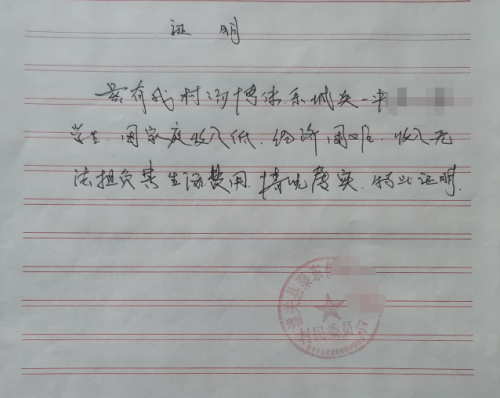 证 明
兹有我村冯博系城关一中
学生.因家庭收入低.经济困难.收入无
法担负其生活费用.情况属实.特此证明.
潼关县秦东镇
村民委员会